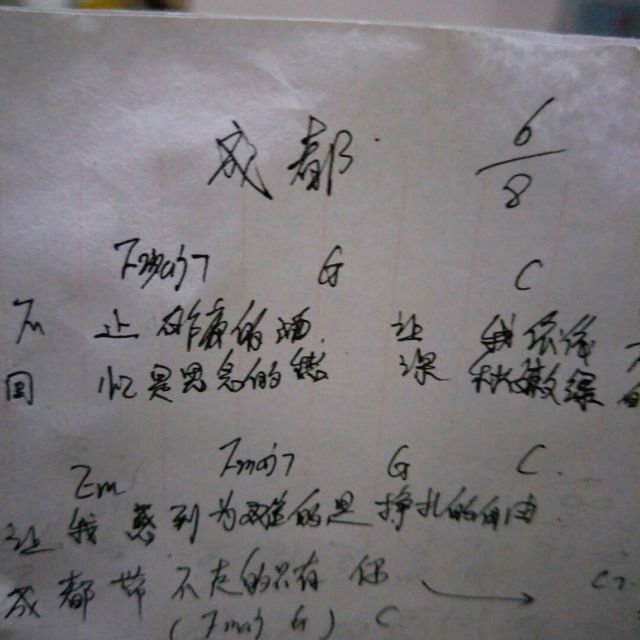 成都 6/8
Fmaj7 G C
不 止 昨夜的酒 让 我依依
回 忆是思念的愁 深 秋嫩绿
Em Fmaj7 G C
让我感到为难的是 挣扎的自由
成都带不走的只有 你
(Fmaj G) C